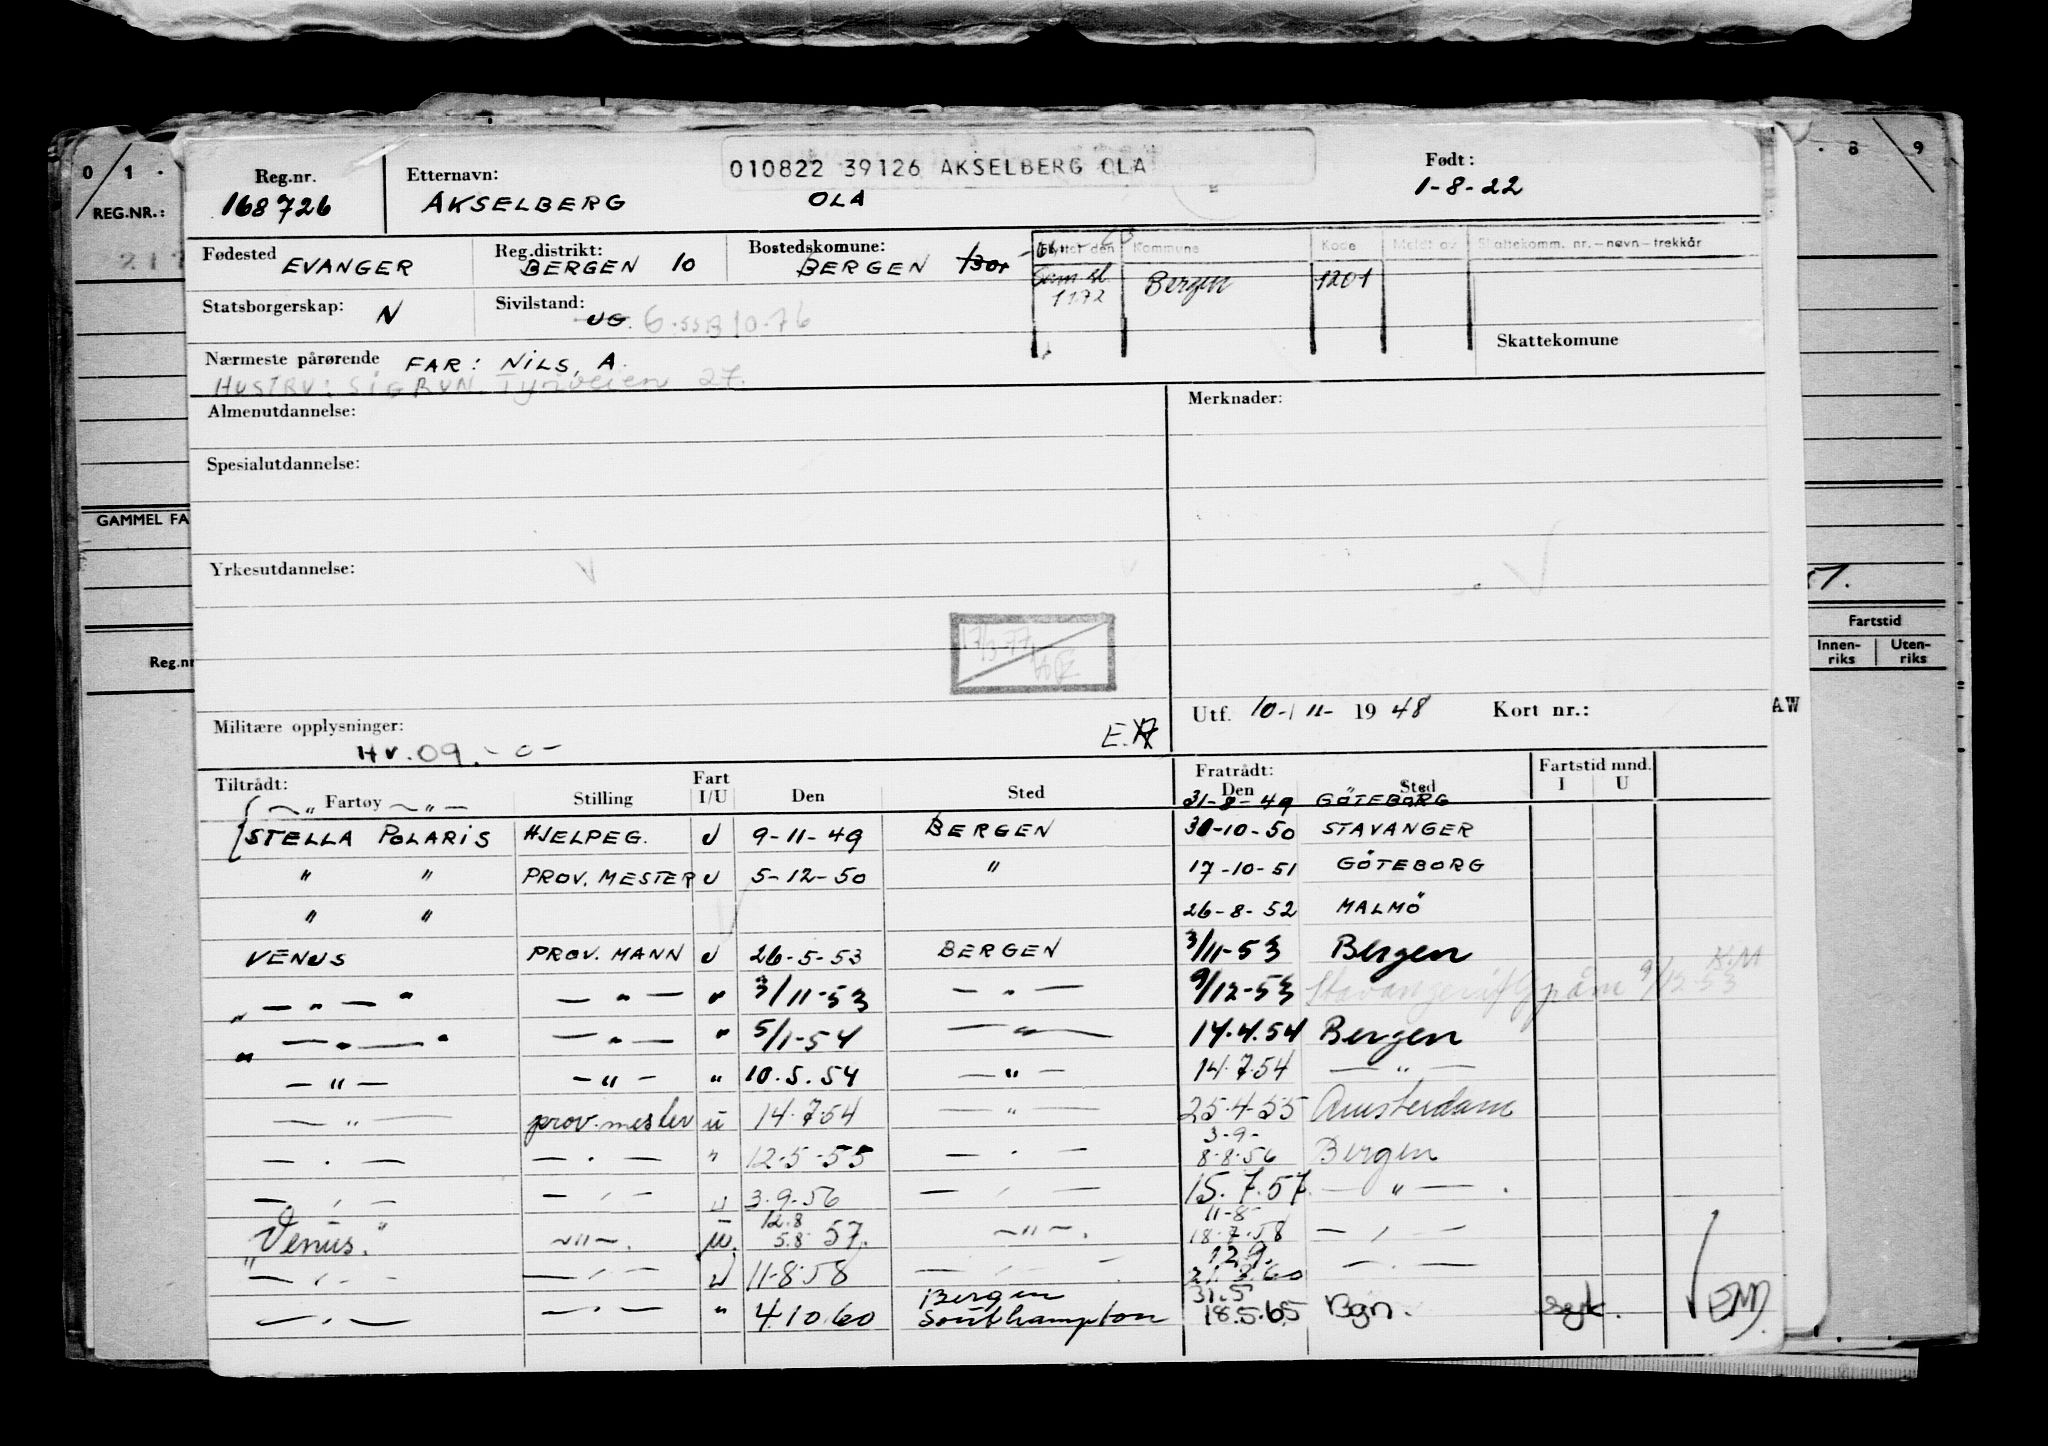 010822 39126 AKSELBERG OLA
0 1 . 8 9
REG.NR.:
Reg.nr. Etternavn: Født:
168726 AKSELBERG OLA 1-8-22
Fødested EVANGER Reg.distrikt: BERGEN 10 Bostedskomune: BERGEN 1301
Flyttet den Kommune Kode Meldt av Skattekomm. nr.-navn-trekkår
1172 Bergen 1201
Statsborgerskap: N Sivilstand: UG. G.
Skattekomune
Nærmeste pårørende FAR: NILS, A.
HUSTRU: SIGRUN. Tyriveien 27.
Almenutdannelse: Merknader:
Spesialutdannelse:
GAMMEL FA
Yrkesutdannelse:
Fartstid
Innen-riks Uten-riks
Reg.nr
Utf. 10-11-1948 Kort nr.: AW
Militære opplysninger:
HV.09.-0-
Tiltrådt: Fratrådt: Fartstid mnd.
Fartøy Stilling Fart I/U Den Sted Den Sted I U
— " — " — 31-8-49 GÖTEBORG
STELLA POLARIS HJELPEG. U 9-11-49 BERGEN 30-10-50 STAVANGER
" " PROV. MESTER U 5-12-50 " 17-10-51 GÖTEBORG
" " 26-8-52 MALMÖ
VENUS PROV. MANN U 26-5-53 BERGEN 3/11-53 Bergen
— " — — " — " 3/11-53 — " — 9/12-53 Stavanger 9/12 53
— " — — " — " 5/1-54 — " — 14.4.54 Bergen
— " — — " — " 10.5.54 — " — 14.7.54 — " —
— " — prov.mester u 14.7.54 — " — 25.4.55 Amsterdam
3-9-
— " — — " — " 12.5-55 — " — 8.8.56 Bergen
— " — — " — u 3.9.56 — " — 15.7.57 — " —
12.8 11-8
"Venus." — " — u. 5.8 57. — " — 18.7.58 — " —
12.9.
— " — — " — u 11-8-58 — " — — " —
Bergen 31.5
— " — — " — " 4.10.60 Southampton 18.5.65 Bgn. syk.